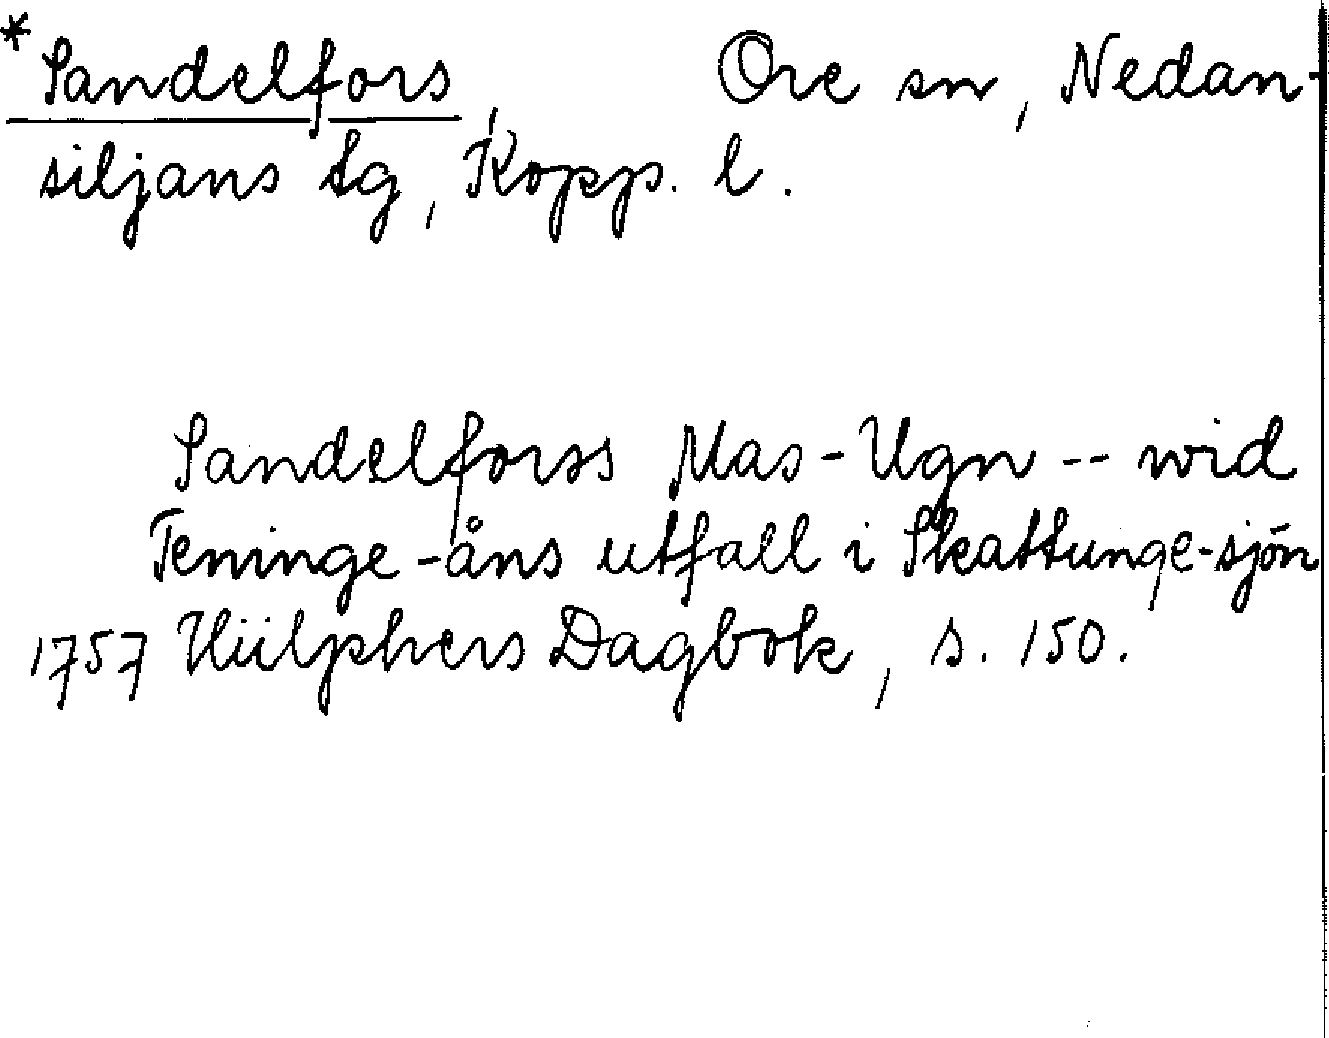 *Sandelfors, Ore sn, Nedan-
siljans tg, Kopp. l.
Sandelforss Mas-Ugn -- wid
Teninge-åns utfall i Skattunge-sjön
1757 Hülphers Dagbok, s. 150.